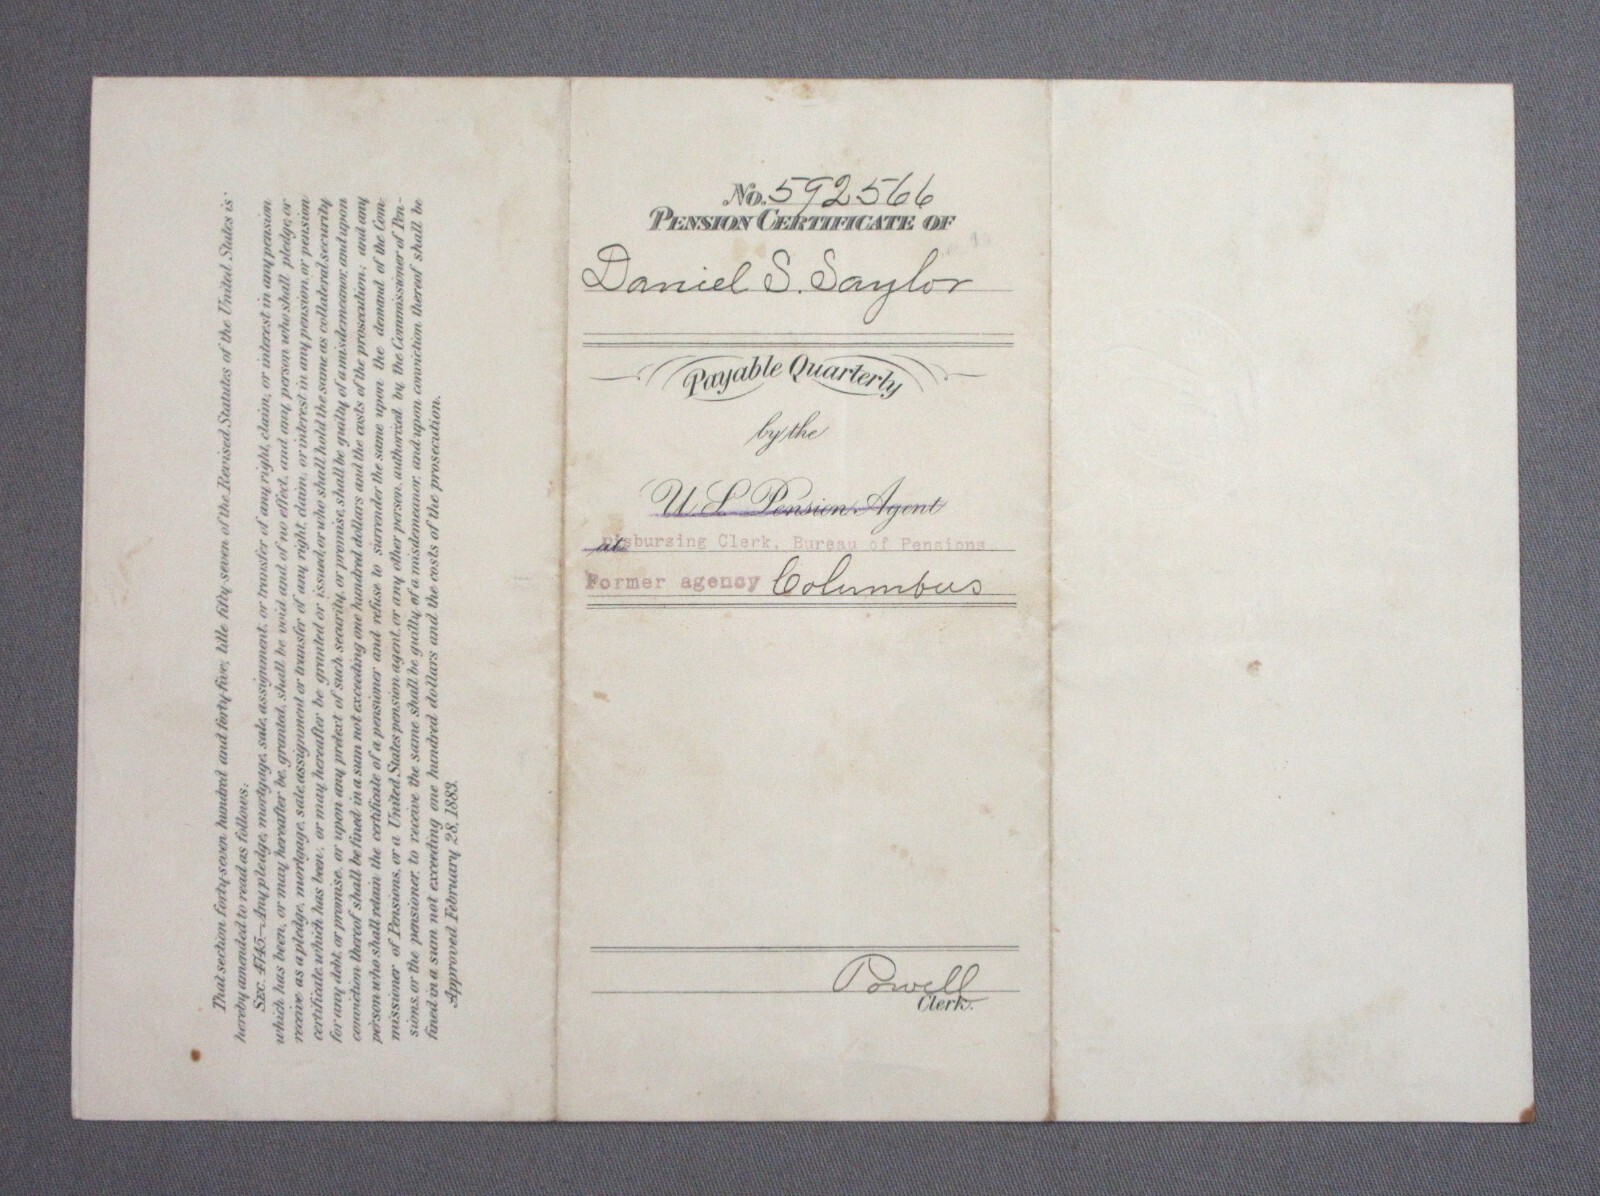 That section forty-seven hundred and forty-five, title fifty-seven of the Revised Statutes of the United States is
hereby amended to read as follows:
SEC. 4745.—Any pledge, mortgage, sale, assignment, or transfer of any right, claim, or interest in any pension
which has been, or may hereafter be, granted, shall be void and of no effect, and any person who shall pledge, or
receive as a pledge, mortgage, sale, assignment or transfer of any right, claim, or interest in any pension, or pension
certificate, which has been, or may hereafter be granted or issued, or who shall hold the same as collateral security
for any debt, or promise, or upon any pretext of such security, or promise, shall be guilty of a misdemeanor, and upon
conviction thereof shall be fined in a sum not exceeding one hundred dollars and the costs of the prosecution; and any
person who shall retain the certificate of a pensioner and refuse to surrender the same upon the demand of the Com-
missioner of Pensions, or a United States pension agent, or any other person, authorized by the Commissioner of Pen-
sions, or the pensioner, to receive the same shall be guilty of a misdemeanor, and upon conviction thereof shall be
fined in a sum not exceeding one hundred dollars and the costs of the prosecution.
Approved February 28, 1883.
No. 592566
PENSION CERTIFICATE OF
Daniel S. Saylor
Payable Quarterly
by the
U.S. Pension Agent
at
Disbursing Clerk, Bureau of Pensions
Former agency Columbus
Powell
Clerk.